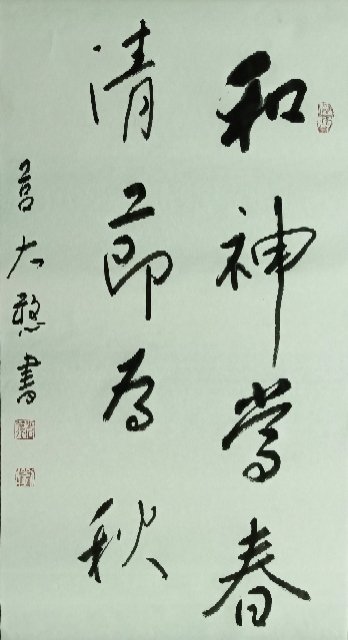 和神當春
清節為秋
莒大憨書